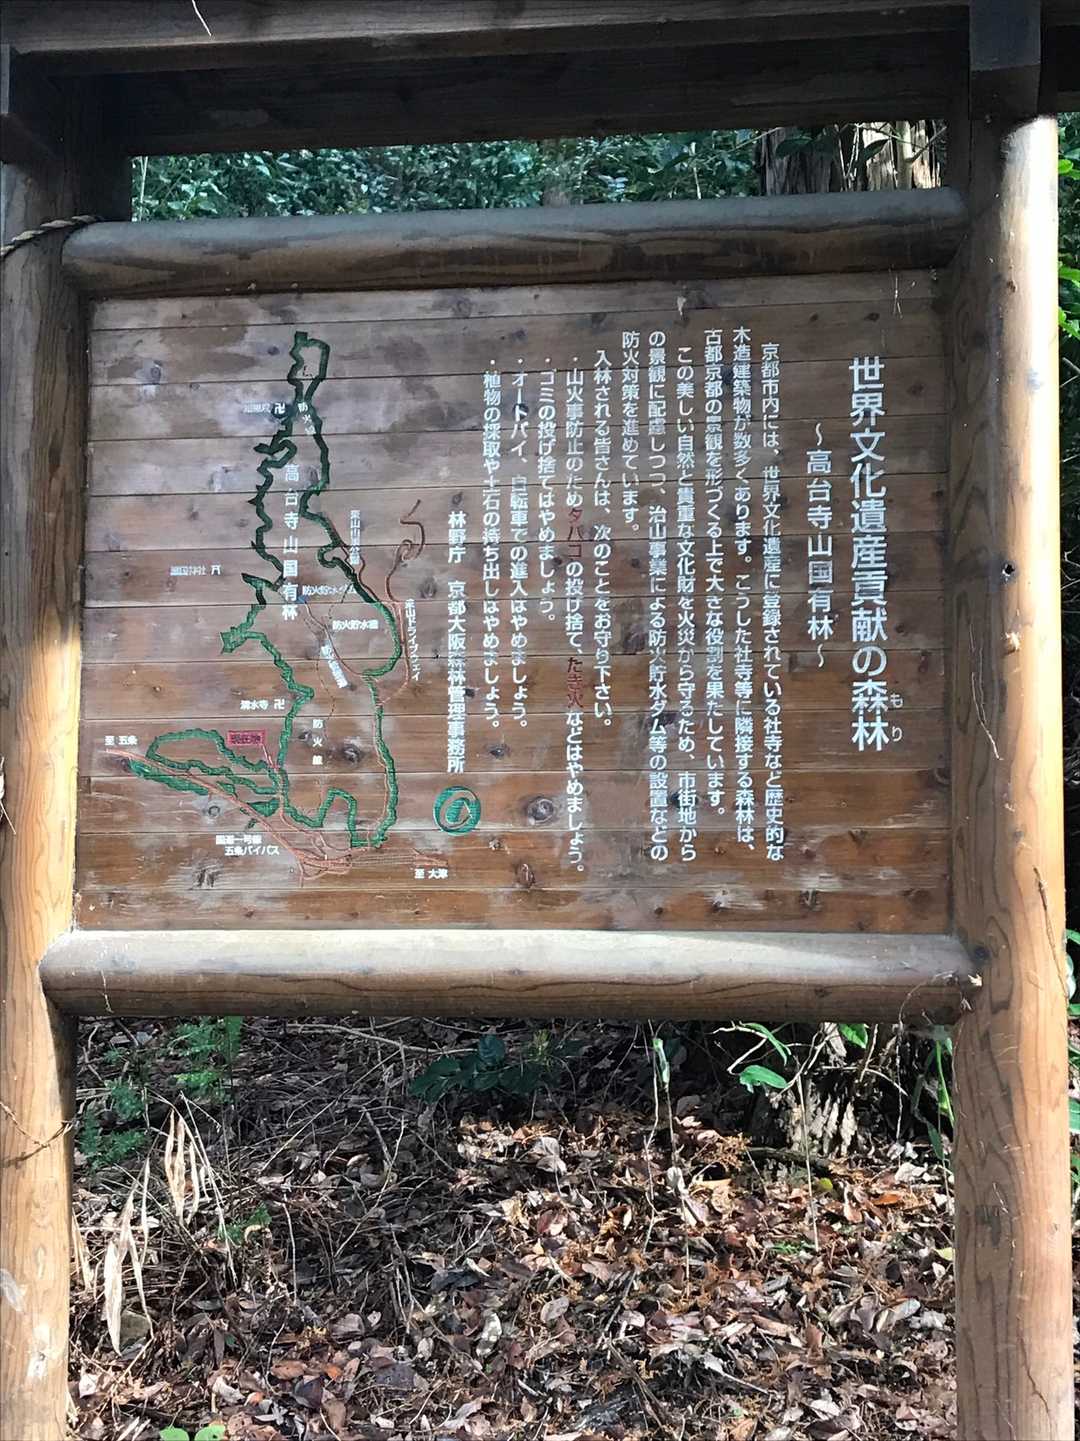 世界文化遺産貢献の森林
もり
〜高台寺山国有林〜
京都市内には、世界文化遺産に登録されている社寺など歴史的な
木造建築物が数多くあります。こうした社寺等に隣接する森林は、
古都京都の景観を形づくる上で大きな役割を果たしています。
この美しい自然と貴重な文化財を火災から守るため、市街地から
の景観に配慮しつつ、治山事業による防火貯水ダム等の設置などの
防火対策を進めています。
入林される皆さんは、次のことをお守り下さい。
・山火事防止のためタバコの投げ捨て、たき火などはやめましょう。
・ゴミの投げ捨てはやめましょう。
・オートバイ、自転車での進入はやめましょう。
・植物の採取や土石の持ち出しはやめましょう。
林野庁 京都大阪森林管理事務所
高台寺山国有林
防火貯水ダム
防火貯水槽
東山ドライブウェイ
清水寺 卍
防火線
現在地
至 五条
国道一号線
五条バイパス
至 大津